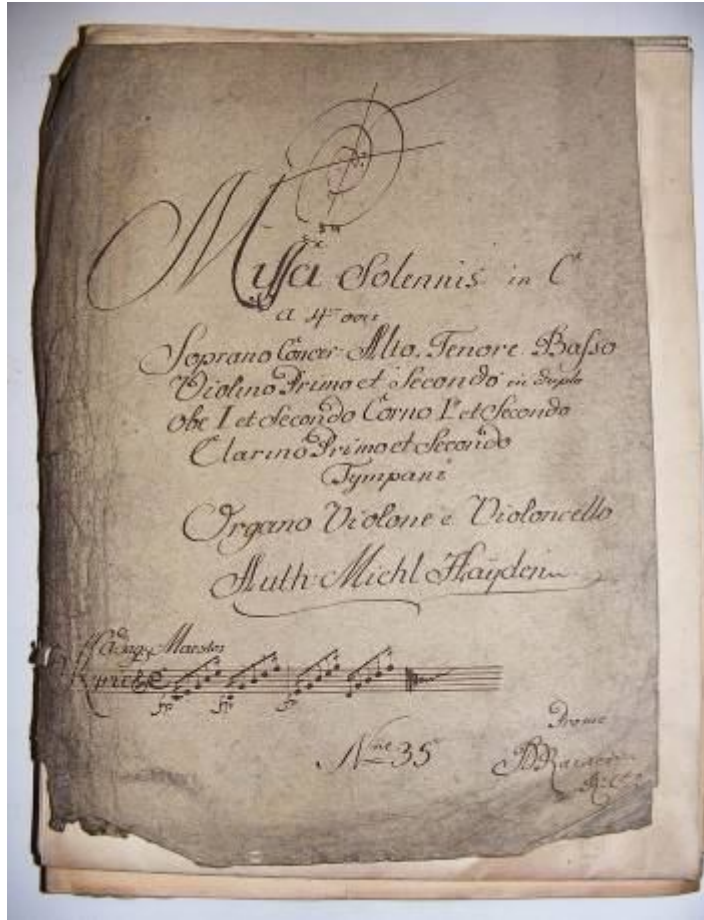 Missa Solennis in C
a 4 voci
Soprano Concer Alto. Tenore. Basso
Violino Primo et Secondo in duplo
Obe I et Secondo Corno I° et Secondo
Clarino Primo et Secondo
Tympani
Organo Violone e Violoncello
Auth: Michl Haÿden
Adag: Maestos
N 35
Prome